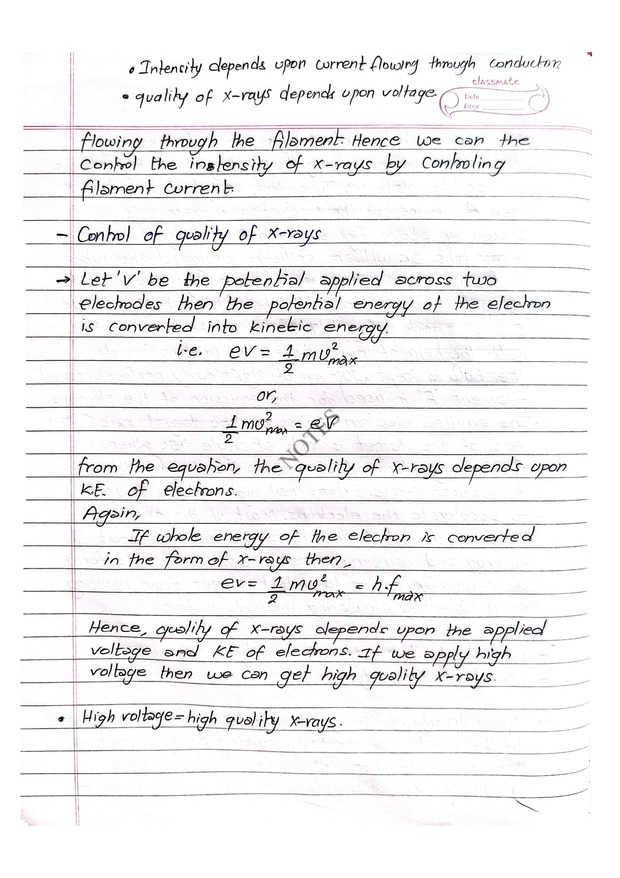 • Intensity depends upon current flowing through conductor
classmate
• quality of x-rays depends upon voltage.
Date
Page
flowing through the filament. Hence we can the
control the instensity of x-rays by controling
filament current.
- Control of quality of x-rays
→ Let 'V' be the potential applied across two
electrodes then the potential energy of the electron
is converted into kinetic energy.
i.e. eV = 1/2 mv²max
or,
1/2 mv²max = eV
NOTES
from the equation, the quality of x-rays depends upon
K.E. of electrons.
Again,
If whole energy of the electron is converted
in the form of x-rays then,
ev = 1/2 mv²max = h.fmax
Hence, quality of x-rays depends upon the applied
voltage and KE of electrons. If we apply high
voltage then we can get high quality x-rays.
• High voltage = high quality x-rays.